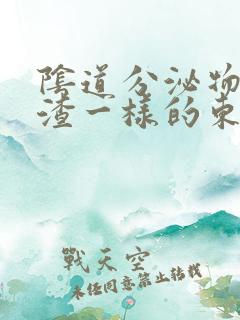 陰道分泌物
渣一樣的東
戰天空
未經同意禁止轉載